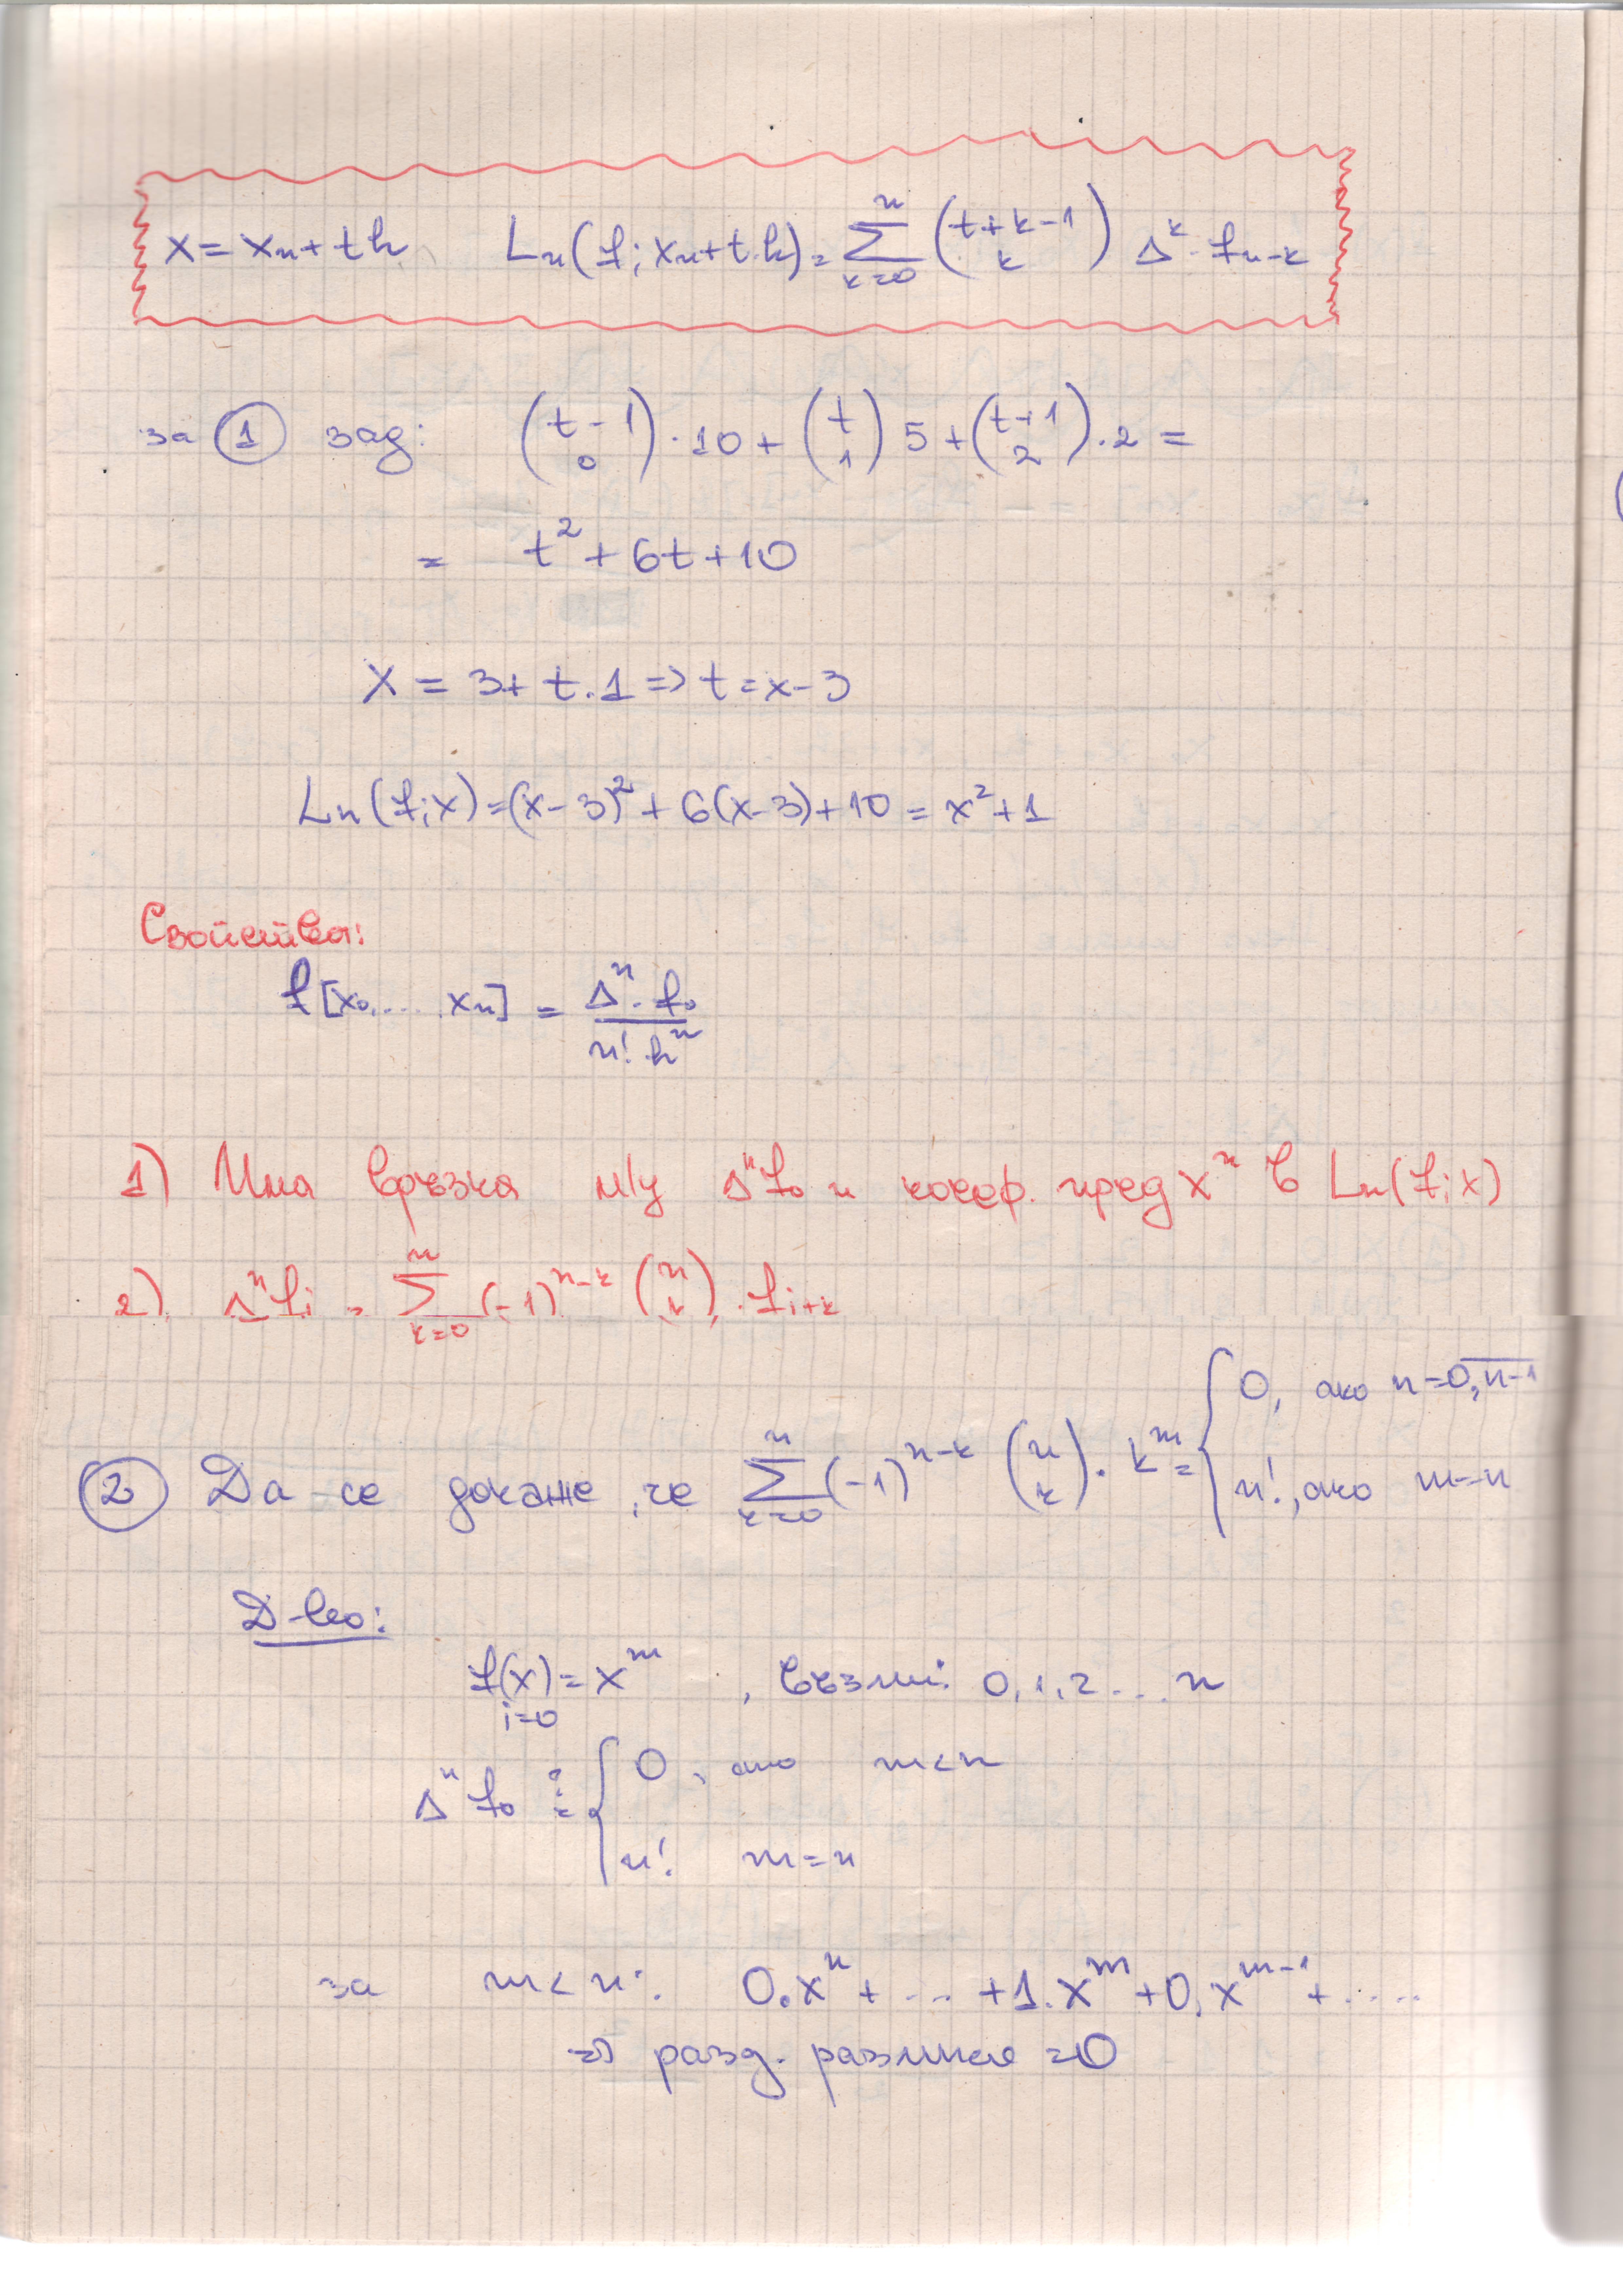 x = xₙ + th   Lₙ(f; xₙ + t.h) = ∑_{k=0}^{n} (t+k-1 over k) Δᵏ.fₙ₋ₖ
за ① зад: (t-1 over 0).10 + (t over 1) 5 + (t+1 over 2).2 =
= t² + 6t + 10
x = 3 + t.1 => t = x - 3
Lₙ(f;x) = (x-3)² + 6(x-3) + 10 = x² + 1
Свойства:
f[x₀, .... xₙ] = Δⁿ.f₀ / n!.hⁿ
1) Има връзка м/у Δⁿf₀ и коеф. пред xⁿ в Lₙ(f;x)
2). Δⁿfᵢ = ∑_{k=0}^{n} (-1)ⁿ⁻ᵏ (n over k).fᵢ₊ₖ
② Да се докаже, че ∑_{k=0}^{n} (-1)ⁿ⁻ᵏ (n over k). kᵐ = { 0, ако n = \overline{0, n-1}
n!, ако m = n
Д-во:
f(x) = xᵐ , възли: 0, 1, 2 ... n
i=0
Δⁿf₀ = { 0, ако m < n
n! m = n
за m < n: 0.xⁿ + ... + 1.xᵐ + 0.xᵐ⁻¹ + ....
=> разд. разлика = 0